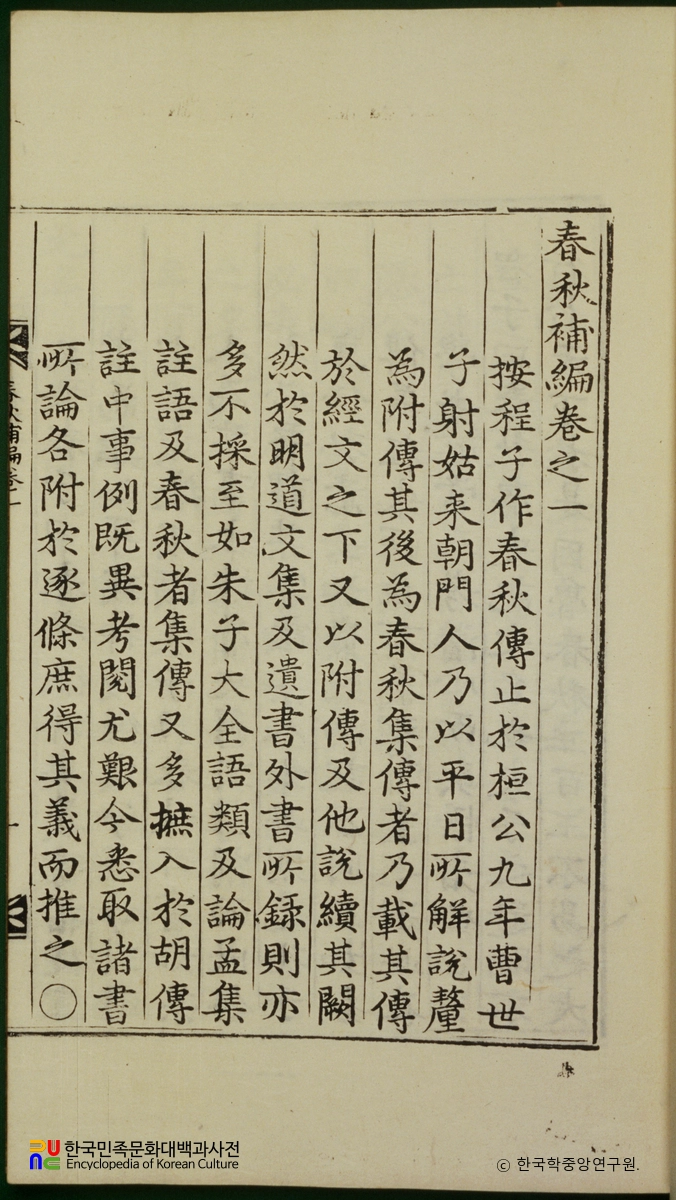 春秋補編卷之一
按程子作春秋傳止於桓公九年曹世
子射姑来朝門人乃以平日所解說釐
為附傳其後為春秋集傳者乃載其傳
於經文之下又以附傳及他說續其闕
然於明道文集及遺書外書所録則亦
多不採至如朱子大全語類及論孟集
註語及春秋者集傳又多摭入於胡傳
註中事例既異考閱尤艱今悉取諸書
所論各附於逐條庶得其義而推之〇
春秋補編卷一
一
한국민족문화대백과사전
Encyclopedia of Korean Culture
© 한국학중앙연구원.